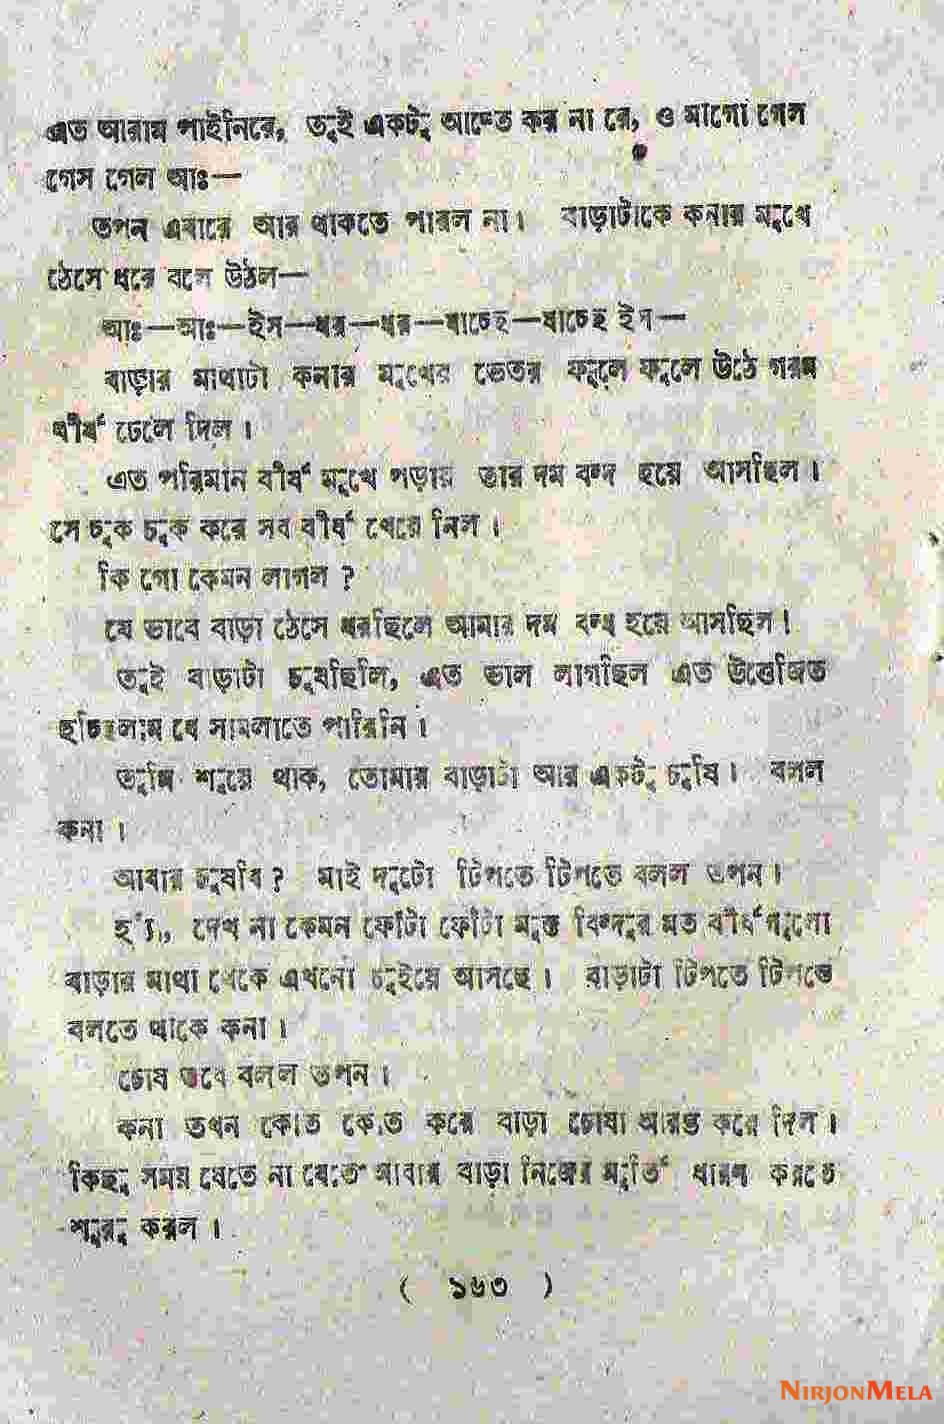 এত আরাম পাইনিরে, তুই একটু আস্তে কর না রে, ও মাগো গেল
গেস গেল আঃ—
তপন এবারে আর থাকতে পারল না। বাড়াটাকে কনার মুখে
ঠেসে ধরে বলে উঠল—
আঃ—আঃ—ইস—ধর—ধর—যাচ্ছে—যাচ্ছে ইস—
বাড়ার মাথাটা কনার মুখের ভেতর ফুলে ফুলে উঠে গরম
বীর্য ঢেলে দিল।
এত পরিমান বীর্য মুখে পড়ায় তার দম বন্দ হয়ে আসছিল।
সে চুক চুক করে সব বীর্য খেয়ে নিল।
কি গো কেমন লাগল ?
যে ভাবে বাড়া ঠেসে ধরছিলে আমার দম বন্ধ হয়ে আসছিস!
তুই বাড়াটা চুষছিলি, এত ভাল লাগছিল এত উত্তেজিত
হচ্ছিলাম যে সামলাতে পারিনি।
তুমি শুয়ে থাক, তোমার বাড়াটা আর একটু চুষি। বলল
কনা।
আবার চুষবি ? মাই দুটো টিপতে টিপতে বলল তপন।
হ্যাঁ, দেখ না কেমন ফোঁটা ফোঁটা মুক্ত বিন্দুর মত বীর্যগুলো
বাড়ার মাথা থেকে এখনো চুইয়ে আসছে। বাড়াটা টিপতে টিপতে
বলতে থাকে কনা।
চোষ তবে বলল তপন।
কনা তখন কোত কোত করে বাড়া চোষা আরম্ভ করে দিল।
কিছু সময় যেতে না যেতে আবার বাড়া নিজের মুর্তি ধারণ করতে
শুরু করল।
( ১৬৩ )
NIRJONMELA